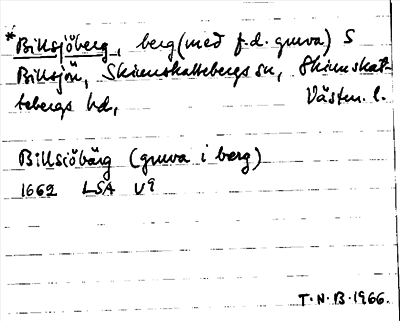 *Billsjöberg, berg (med f.d. gruva) S
Billsjön, Skinnskattebergs sn, Skinnskat-
tebergs hd, Västm. l.
Billsiöbärg (gruva i berg)
1662 LSA U9
T.N.B. 1966.